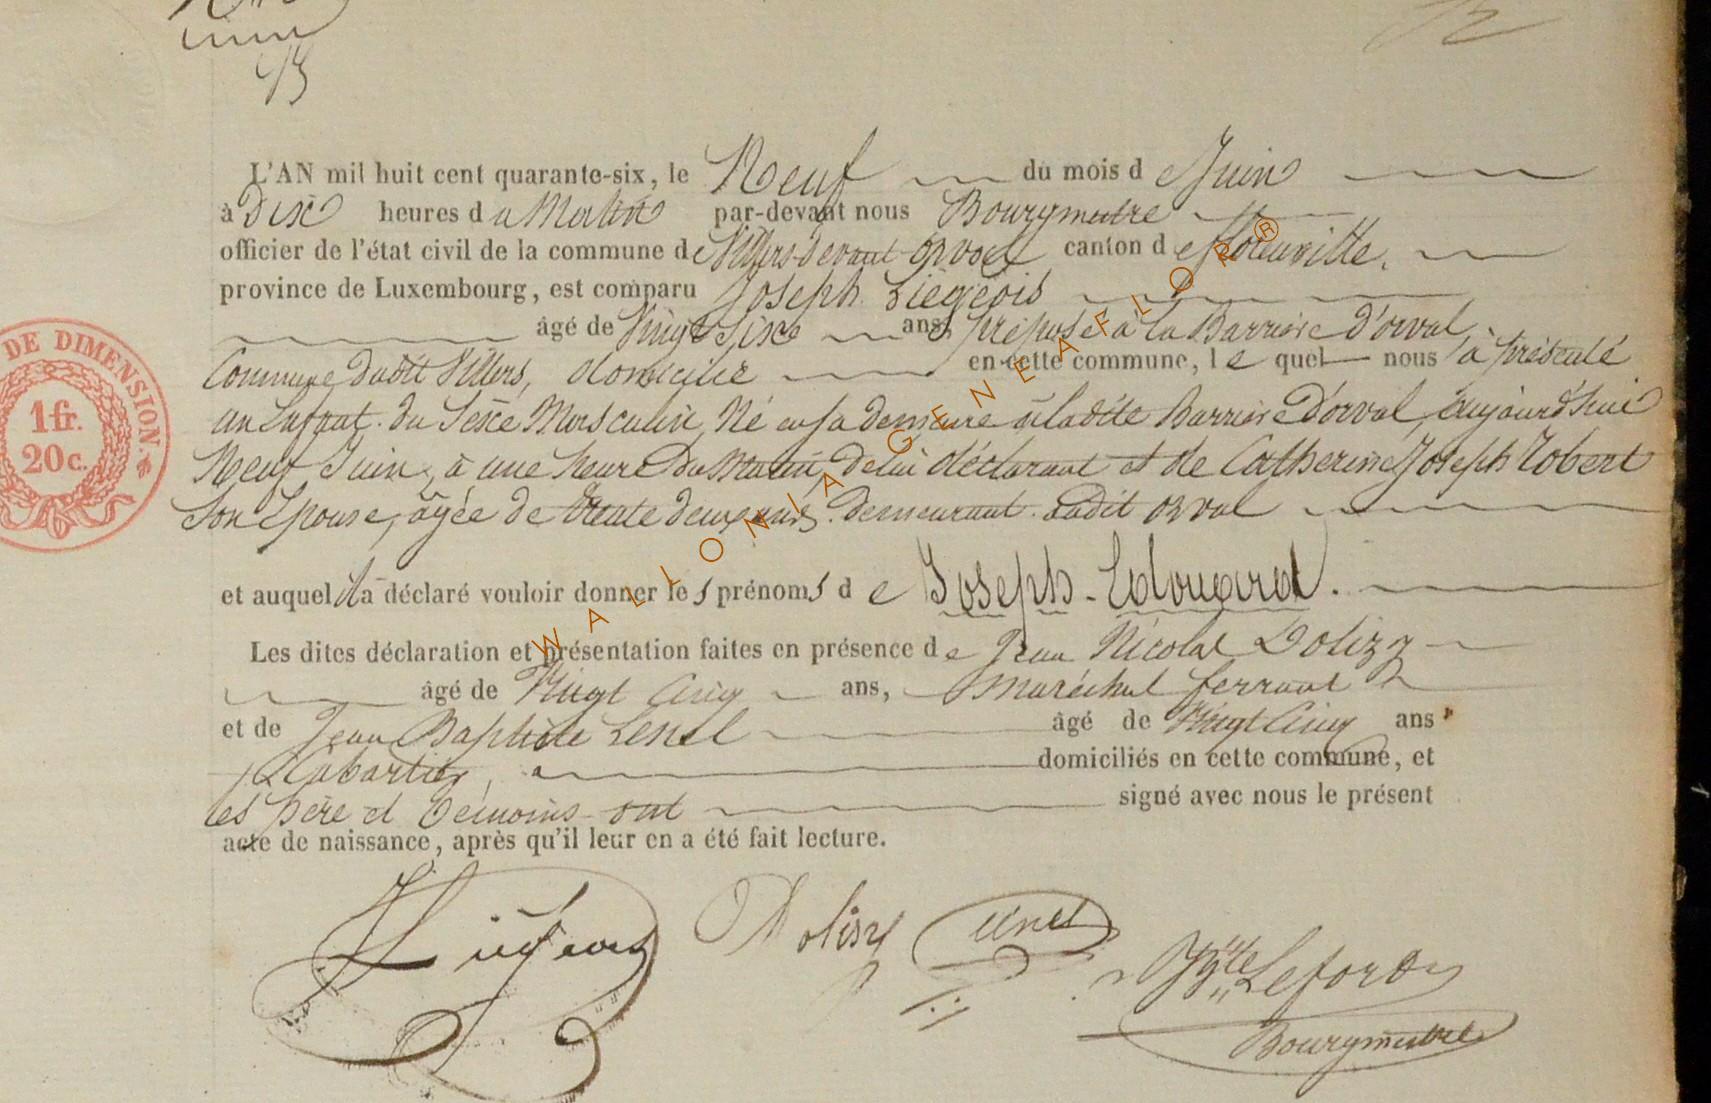 13
L'AN mil huit cent quarante-six, le Neuf du mois de Juin
à Dix heures du Matin par-devant nous Bourgmestre
officier de l'état civil de la commune de Villers devant Orval canton de Florenville,
province de Luxembourg, est comparu Joseph Liégeois
âgé de Vingt Six ans, préposé à la Barrière d'orval,
Commune dudit Villers, domicilié en cette commune, lequel nous à présenté
un Enfant du Sexe Masculin, Né en sa demeure à ladite Barrière D'orval, aujourd'hui
Neuf Juin, à une heure du Matin, de lui déclarant et de Catherine Joseph Robert
Son Epouse, âgée de trente deux ans, demeurant audit orval
et auquel il a déclaré vouloir donner les prénoms de Joseph-Edouard.
Les dites déclaration et présentation faites en présence de Jean Nicolas Dolizy
âgé de Vingt Cinq ans, maréchal ferrant
et de Jean Baptiste Lenel âgé de Vingt Cinq ans
Cabartier, domiciliés en cette commune, et
les père et témoins ont signé avec nous le présent
acte de naissance, après qu'il leur en a été fait lecture.
Liégeois Dolisy Lenel
JBte Lefort
Bourgmestre
DE DIMENSION.
1 fr.
20 c.
WALLONIA GENEAFLOR®